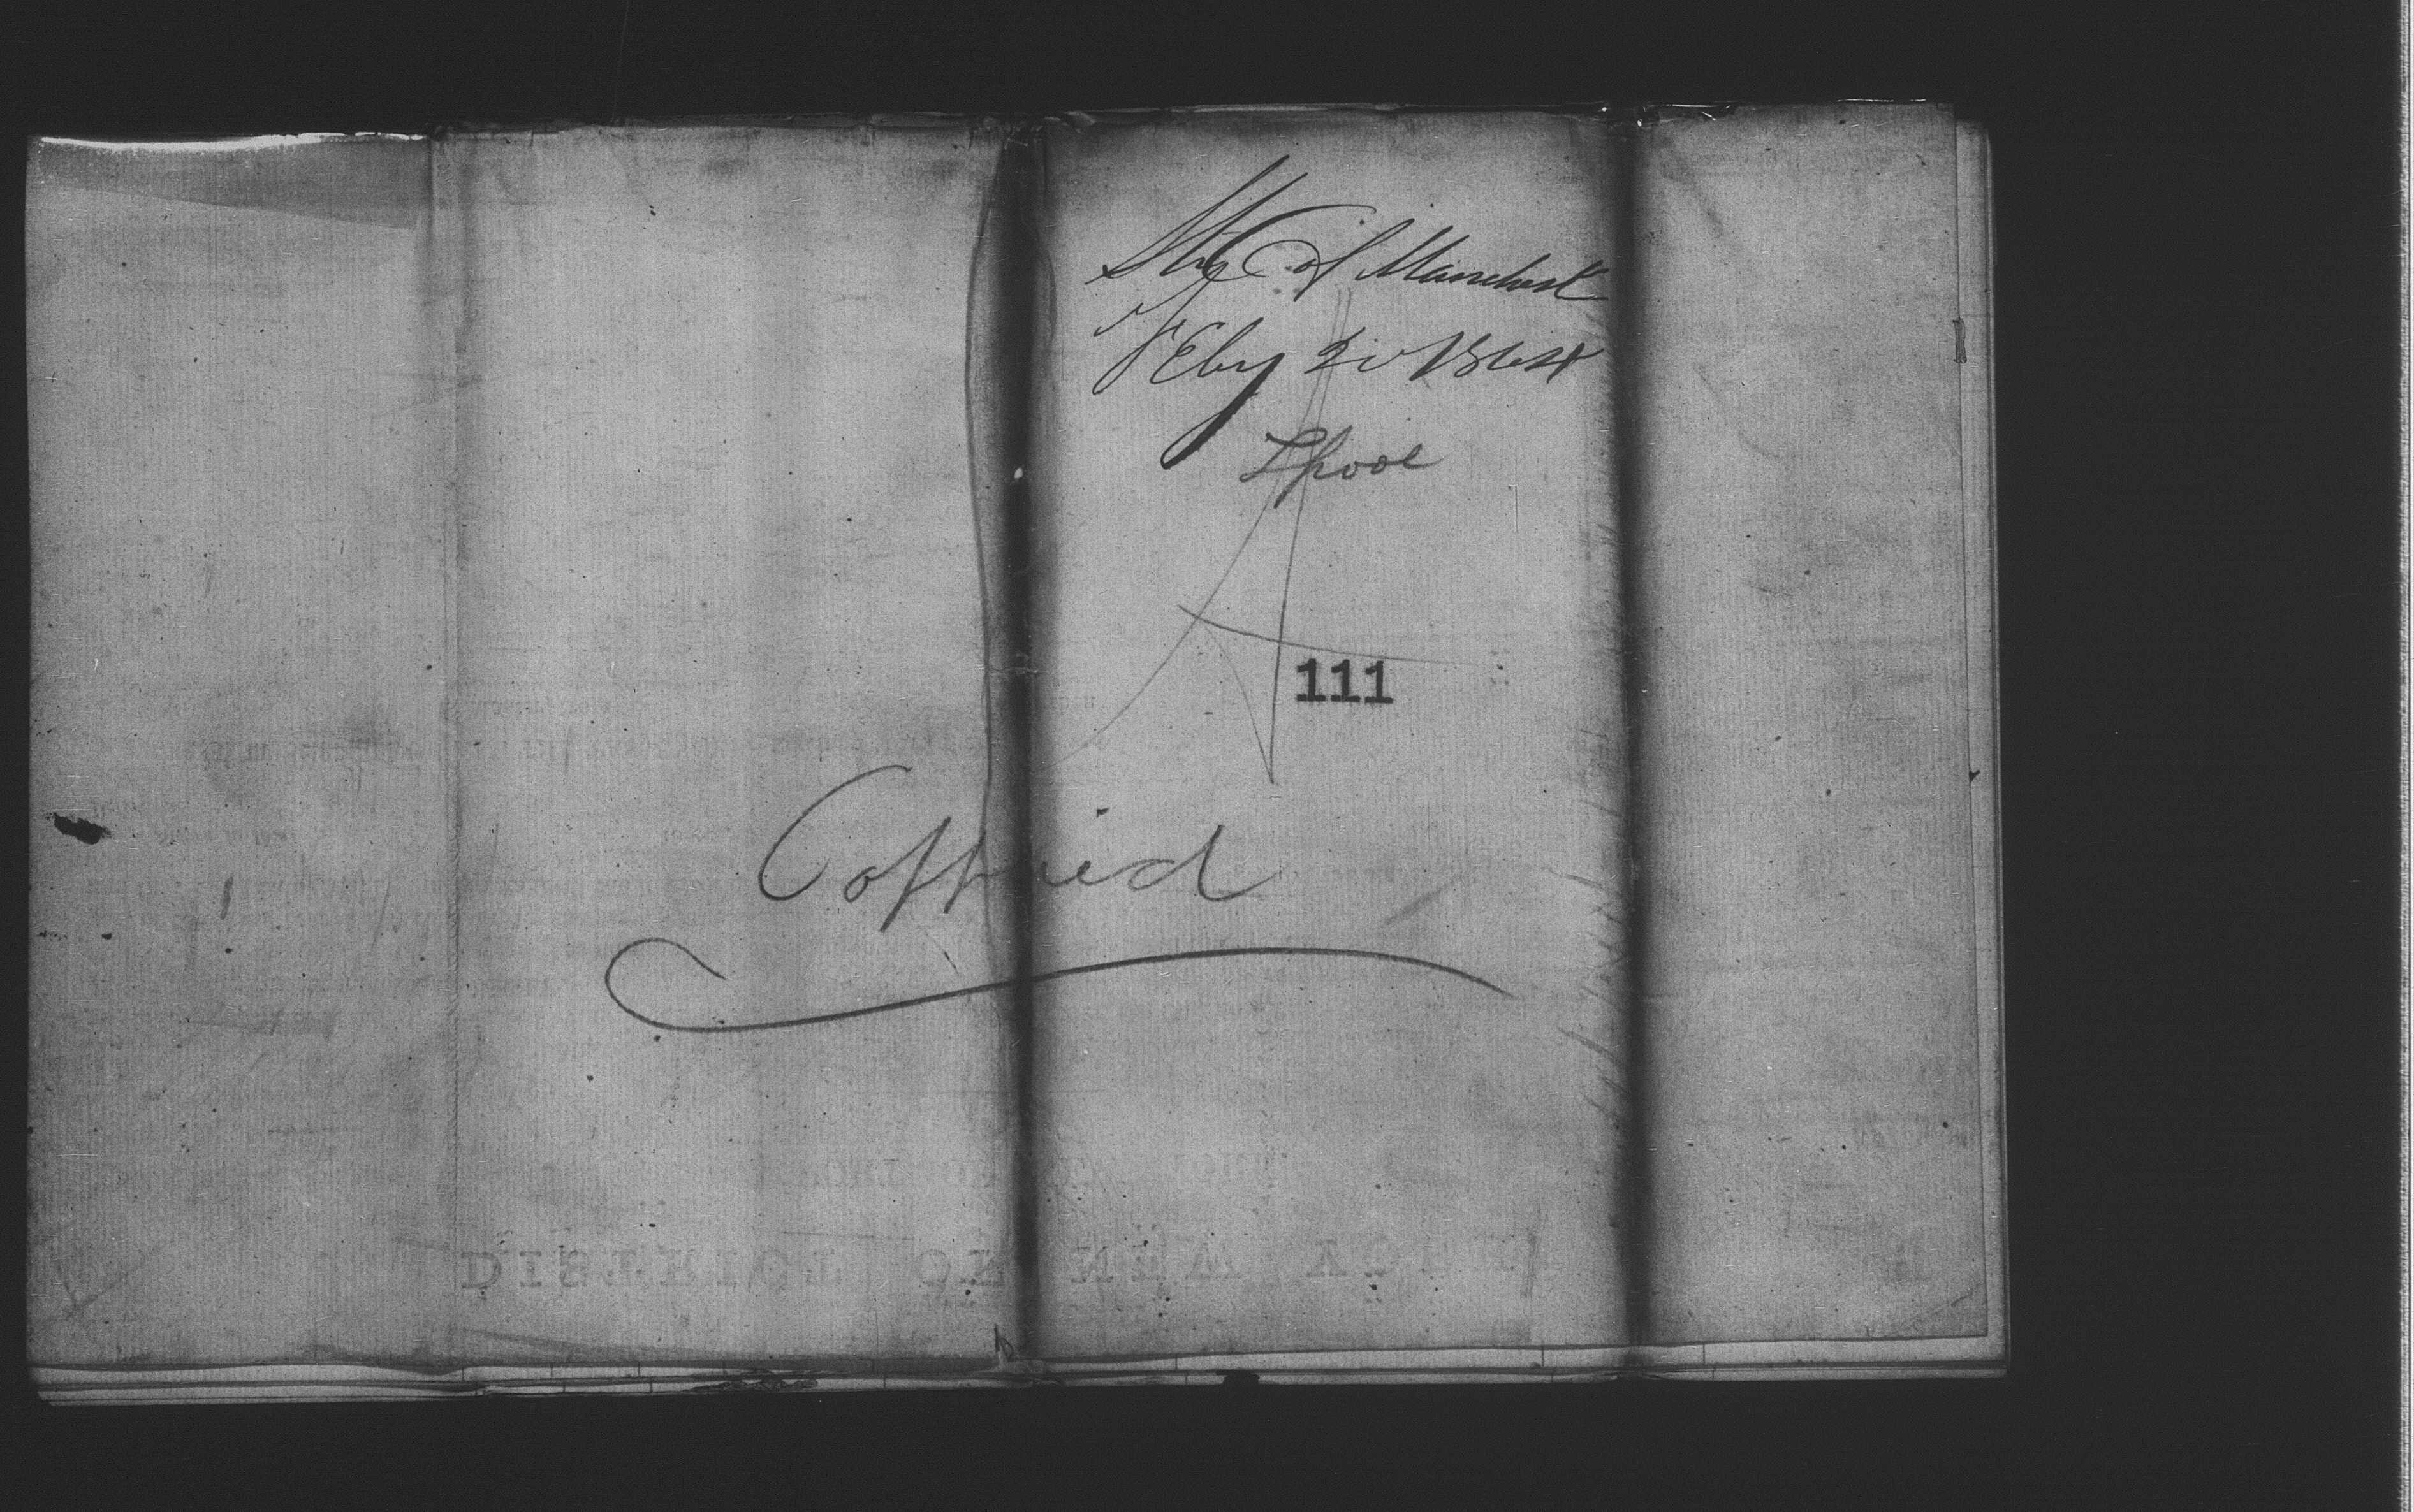 Str C of Manchest
Feby 20 1864
Lpool
111
Coppied
DISTRICT OF NEW YORK